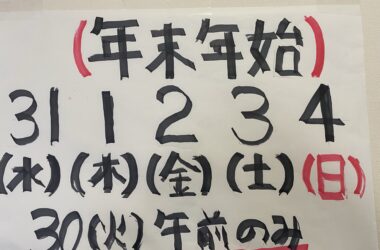 (年末年始)
31 1 2 3 4
(水)(木)(金)(土)(日)
30(火)午前のみ